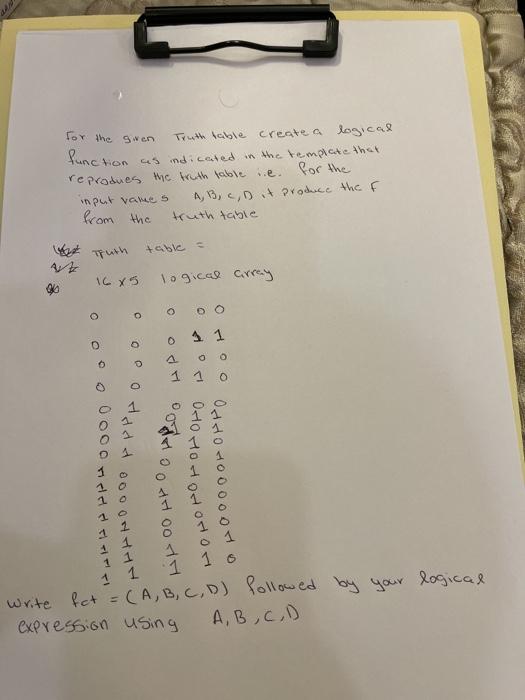 For the given Truth table create a logical
function as indicated in the template that
reprodues the truth table i.e. for the
input values A, B, C, D it produce the F
from the truth table
Truth table =
16 x 5 logical array
0 0 0 0 0
0 0 0 1 1
0 0 1 0 0
0 0 1 1 0
0 1 0 0 0
0 1 0 1 1
0 1 1 0 1
0 1 1 1 0
1 0 0 0 1
1 0 0 1 0
1 0 1 0 0
1 0 1 1 0
1 1 0 0 0
1 1 0 1 0
1 1 1 0 1
1 1 1 1 0
Write fct = (A, B, C, D) followed by your logical
expression using A, B, C, D